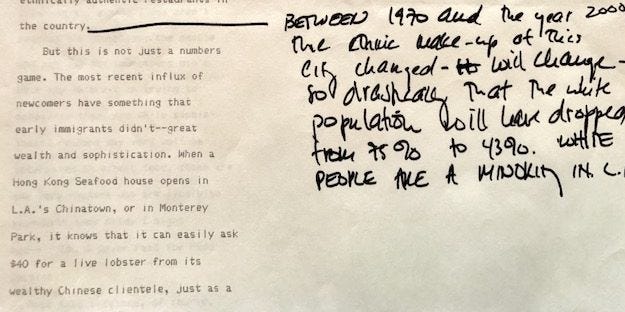 ethnically authentic restaurants in
the country.
But this is not just a numbers
game. The most recent influx of
newcomers have something that
early immigrants didn't--great
wealth and sophistication. When a
Hong Kong Seafood house opens in
L.A.'s Chinatown, or in Monterey
Park, it knows that it can easily ask
$40 for a live lobster from its
wealthy Chinese clientele, just as a
BETWEEN 1970 and the year 2000
the ethnic make-up of this
city changed - will change -
so drastically that the white
population will have dropped
from 75% to 43%. WHITE
PEOPLE ARE A MINORITY IN L.